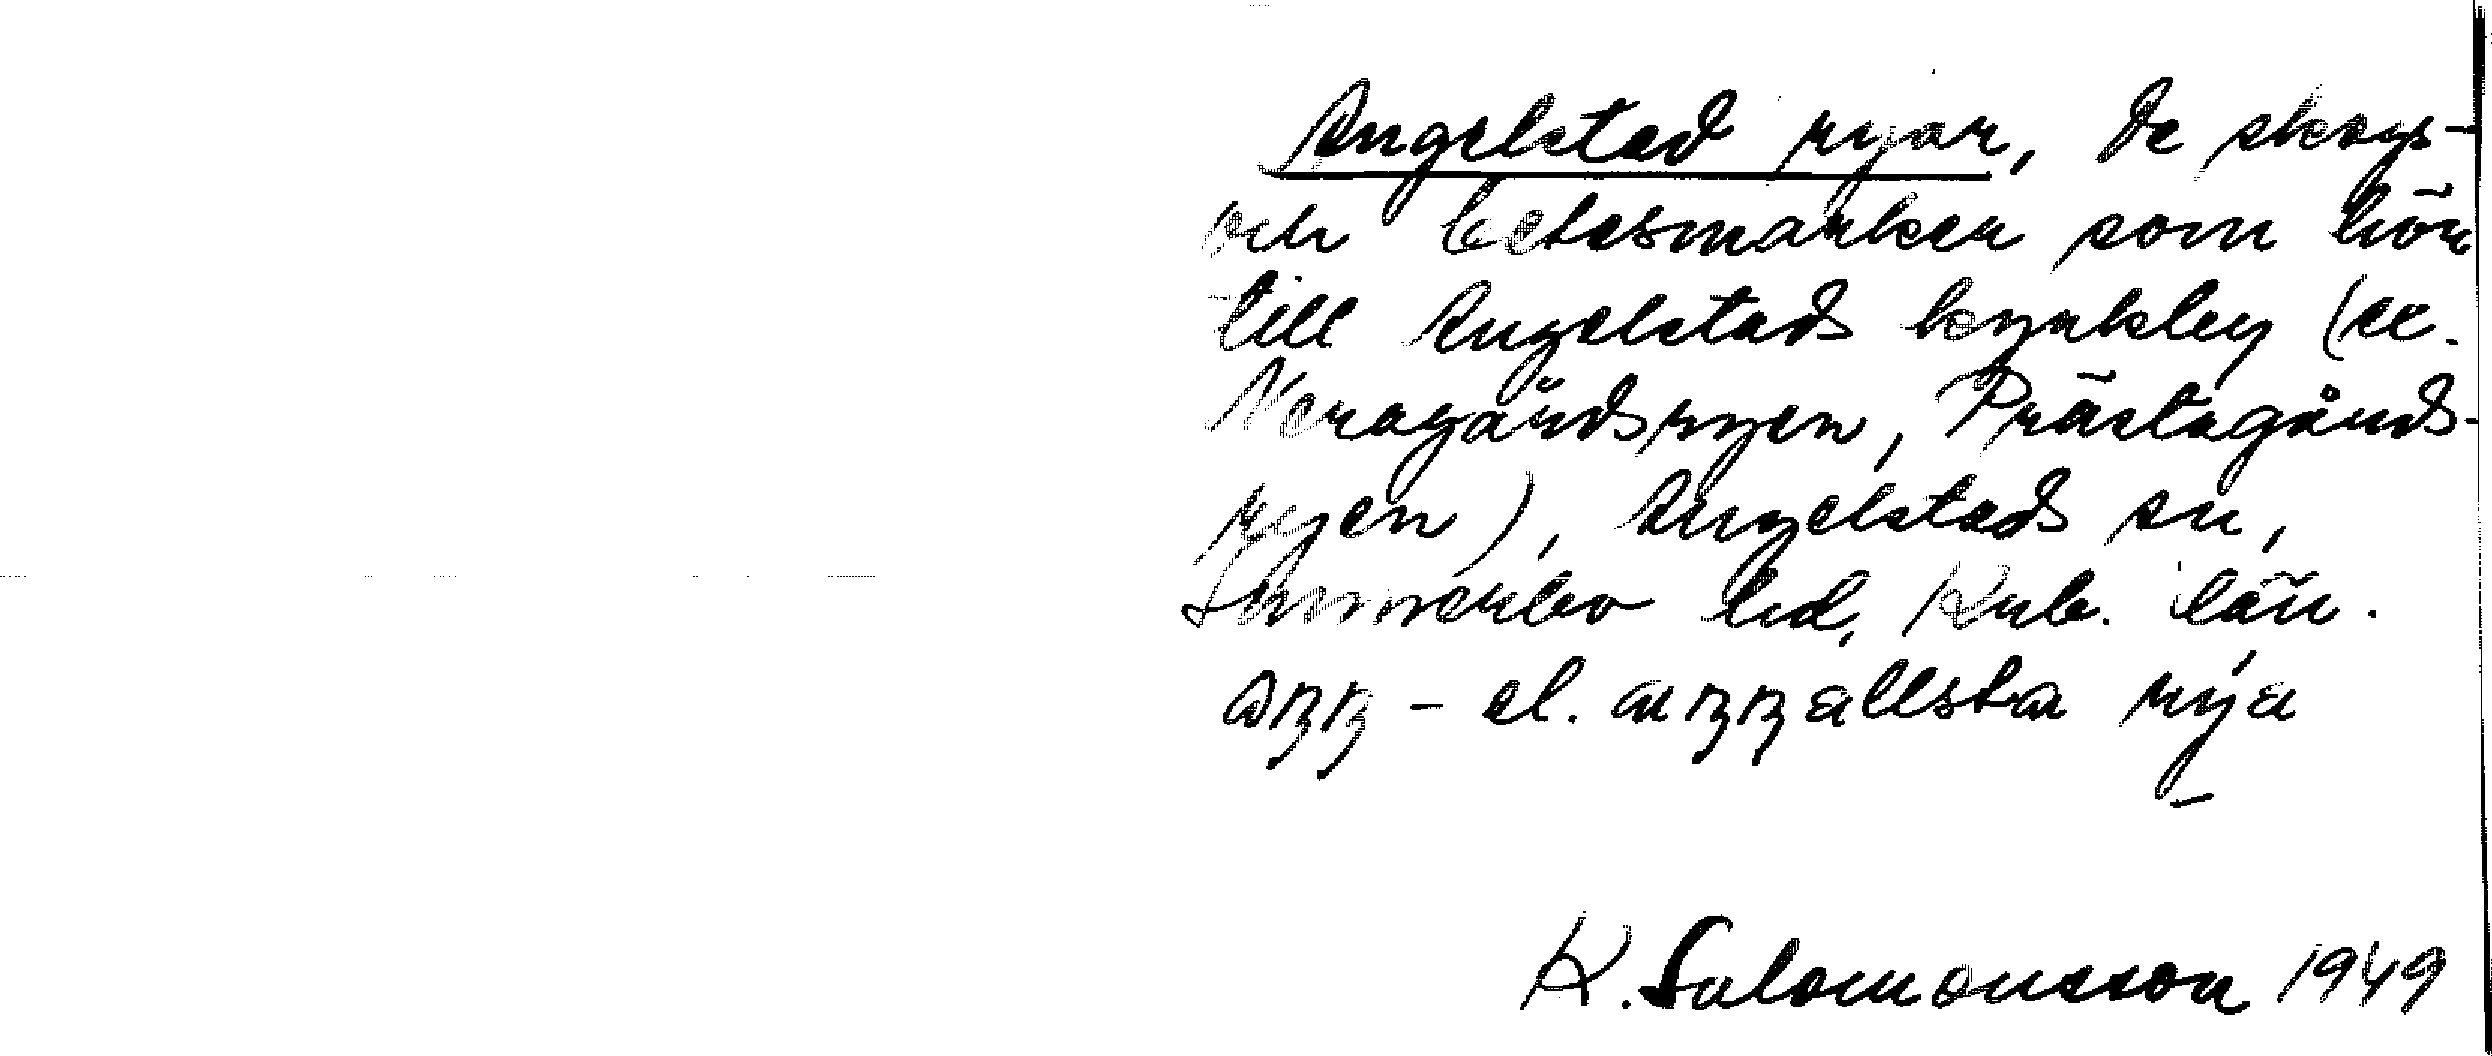 Angelstad ryar, de skogs-
och betesmarker som hör
till Angelstads kyrkby (se.
Neragårdsryen, Prästagårds-
ryen), Angelstads sn,
Sunnerbo hd, Krb. län.
aŋŋ - el. aŋŋallsta rya
K. Salomonsson 1949